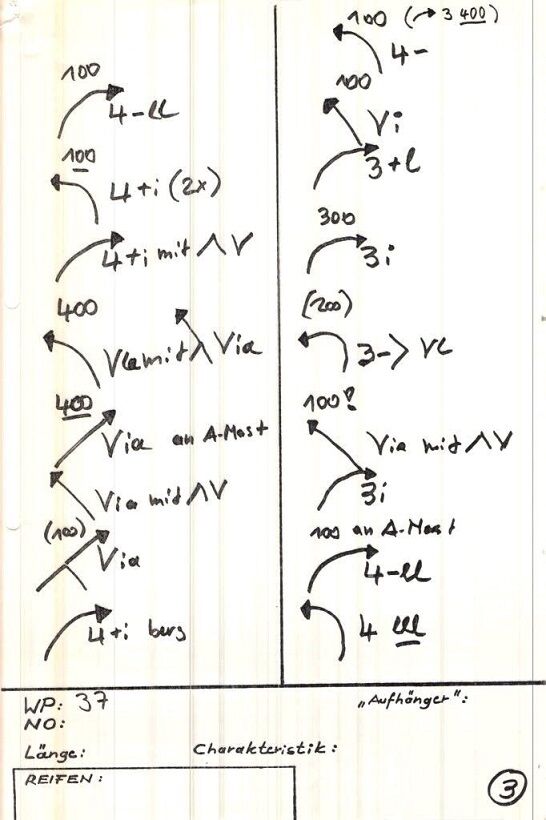 100
4-ll
100
4+i (2x)
4+i mit ΛV
400
mit Λ Via
400
Via an A-Mast
Via mit ΛV
(100)
Via
4+i berg
100 (→ 3 400)
4-
100
Vi
3+l
300
3i
(200)
3->
100!
Via mit ΛV
3i
100 an A-Mast
4-ll
4 lll
WP: 37
„Aufhänger“:
NO:
Länge: Charakteristik:
REIFEN:
3